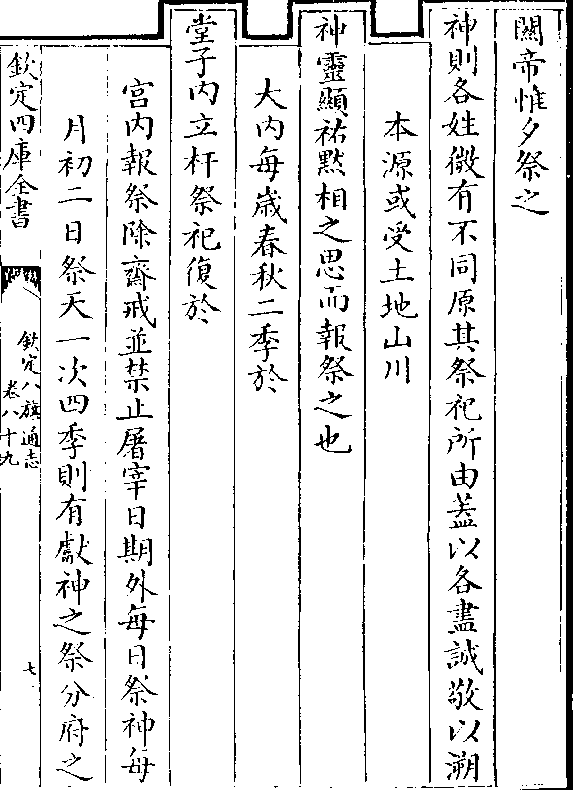 關帝惟夕祭之
神則各姓微有不同原其祭祀所由蓋以各盡誠敬以溯
本源或受土地山川
神靈顯祐黙相之思而報祭之也
大内每歳春秋二季於
堂子内立杆祭祀復於
宮内報祭除齋戒並禁止屠宰日期外每日祭神每
月初二日祭天一次四季則有獻神之祭分府之
欽定四庫全書
欽定八旗通志
卷八十九
七